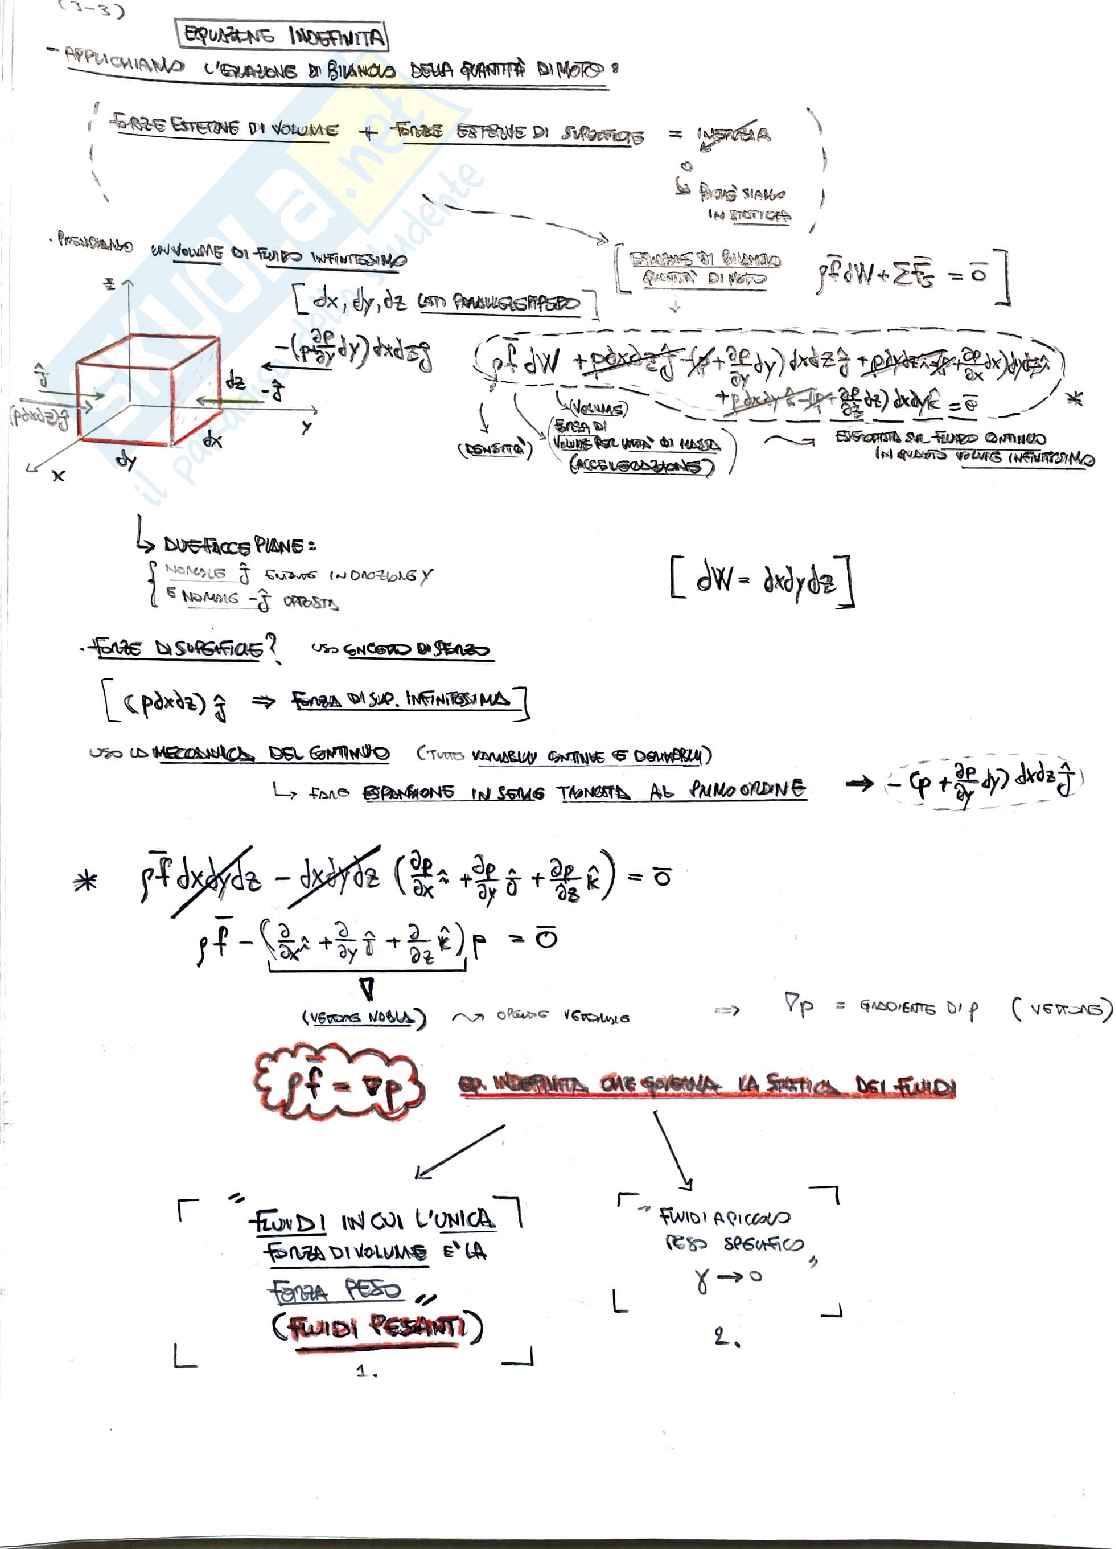 (3-3)
EQUAZIONE INDEFINITA
- APPLICHIAMO L'EQUAZIONE DI BILANCIO DELLA QUANTITÀ DI MOTO:
FORZE ESTERNE DI VOLUME + FORZE ESTERNE DI SUPERFICIE = INERZIA
↳ POICHÈ SIAMO
IN STATICA
· PRENDIAMO UN VOLUME DI FLUIDO INFINITESIMO
[EQUAZIONE DI BILANCIO
QUANTITÀ DI MOTO
ρf̄dW + ΣF̄s = 0̄]
[dx, dy, dz LATI PARALLELEPIPEDO]
z
-(p ∂p/∂y dy) dxdz ĵ
ρf̄ dW + pdxdz ĵ -(p + ∂p/∂y dy) dxdz ĵ + pdydz î -(p + ∂p/∂x dx) dydz î
+ pdxdy k̂ -(p + ∂p/∂z dz) dxdy k̂ = 0̄ *
ĵ
dz
-ĵ
(pdxdz)ĵ
dx
y
dy
x
(DENSITÀ)
(VOLUME)
FORZA DI
VOLUME PER UNITÀ DI MASSA
(ACCELERAZIONE)
ESEGUITA SUL FLUIDO CONTINUO
IN QUANTO VOLUME INFINITESIMO
↳ DUE FACCE PIANE:
NORMALE ĵ ENTRANTE IN DIREZIONE Y
E NORMALE -ĵ OPPOSTA
[dW = dxdydz]
· FORZE DI SUPERFICIE? USO CONCETTO DI SFORZO
[(pdxdz) ĵ ⇒ FORZA DI SUP. INFINITESIMA]
USO LA MECCANICA DEL CONTINUO (TUTTE VARIABILI CONTINUE E DERIVABILI)
↳ FARE ESPANSIONE IN SERIE TRONCATA AL PRIMO ORDINE → -(p + ∂p/∂y dy) dxdz ĵ
* ρf̄ dxdydz - dxdydz (∂p/∂x î + ∂p/∂y ĵ + ∂p/∂z k̂) = 0̄
ρf̄ - (∂/∂x î + ∂/∂y ĵ + ∂/∂z k̂) p = 0̄
∇
(VETTORE NABLA) ⇝ OPERATORE VETTORIALE ⇒ ∇p = GRADIENTE DI p (VETTORE)
ρf̄ = ∇p EQ. INDEFINITA CHE GOVERNA LA STATICA DEI FLUIDI
"FLUIDI IN CUI L'UNICA
FORZA DI VOLUME E' LA
FORZA PESO"
(FLUIDI PESANTI)
1.
"FLUIDI A PICCOLO
PESO SPECIFICO"
γ → 0
2.
SKUOLA.net
il paradiso dello studente